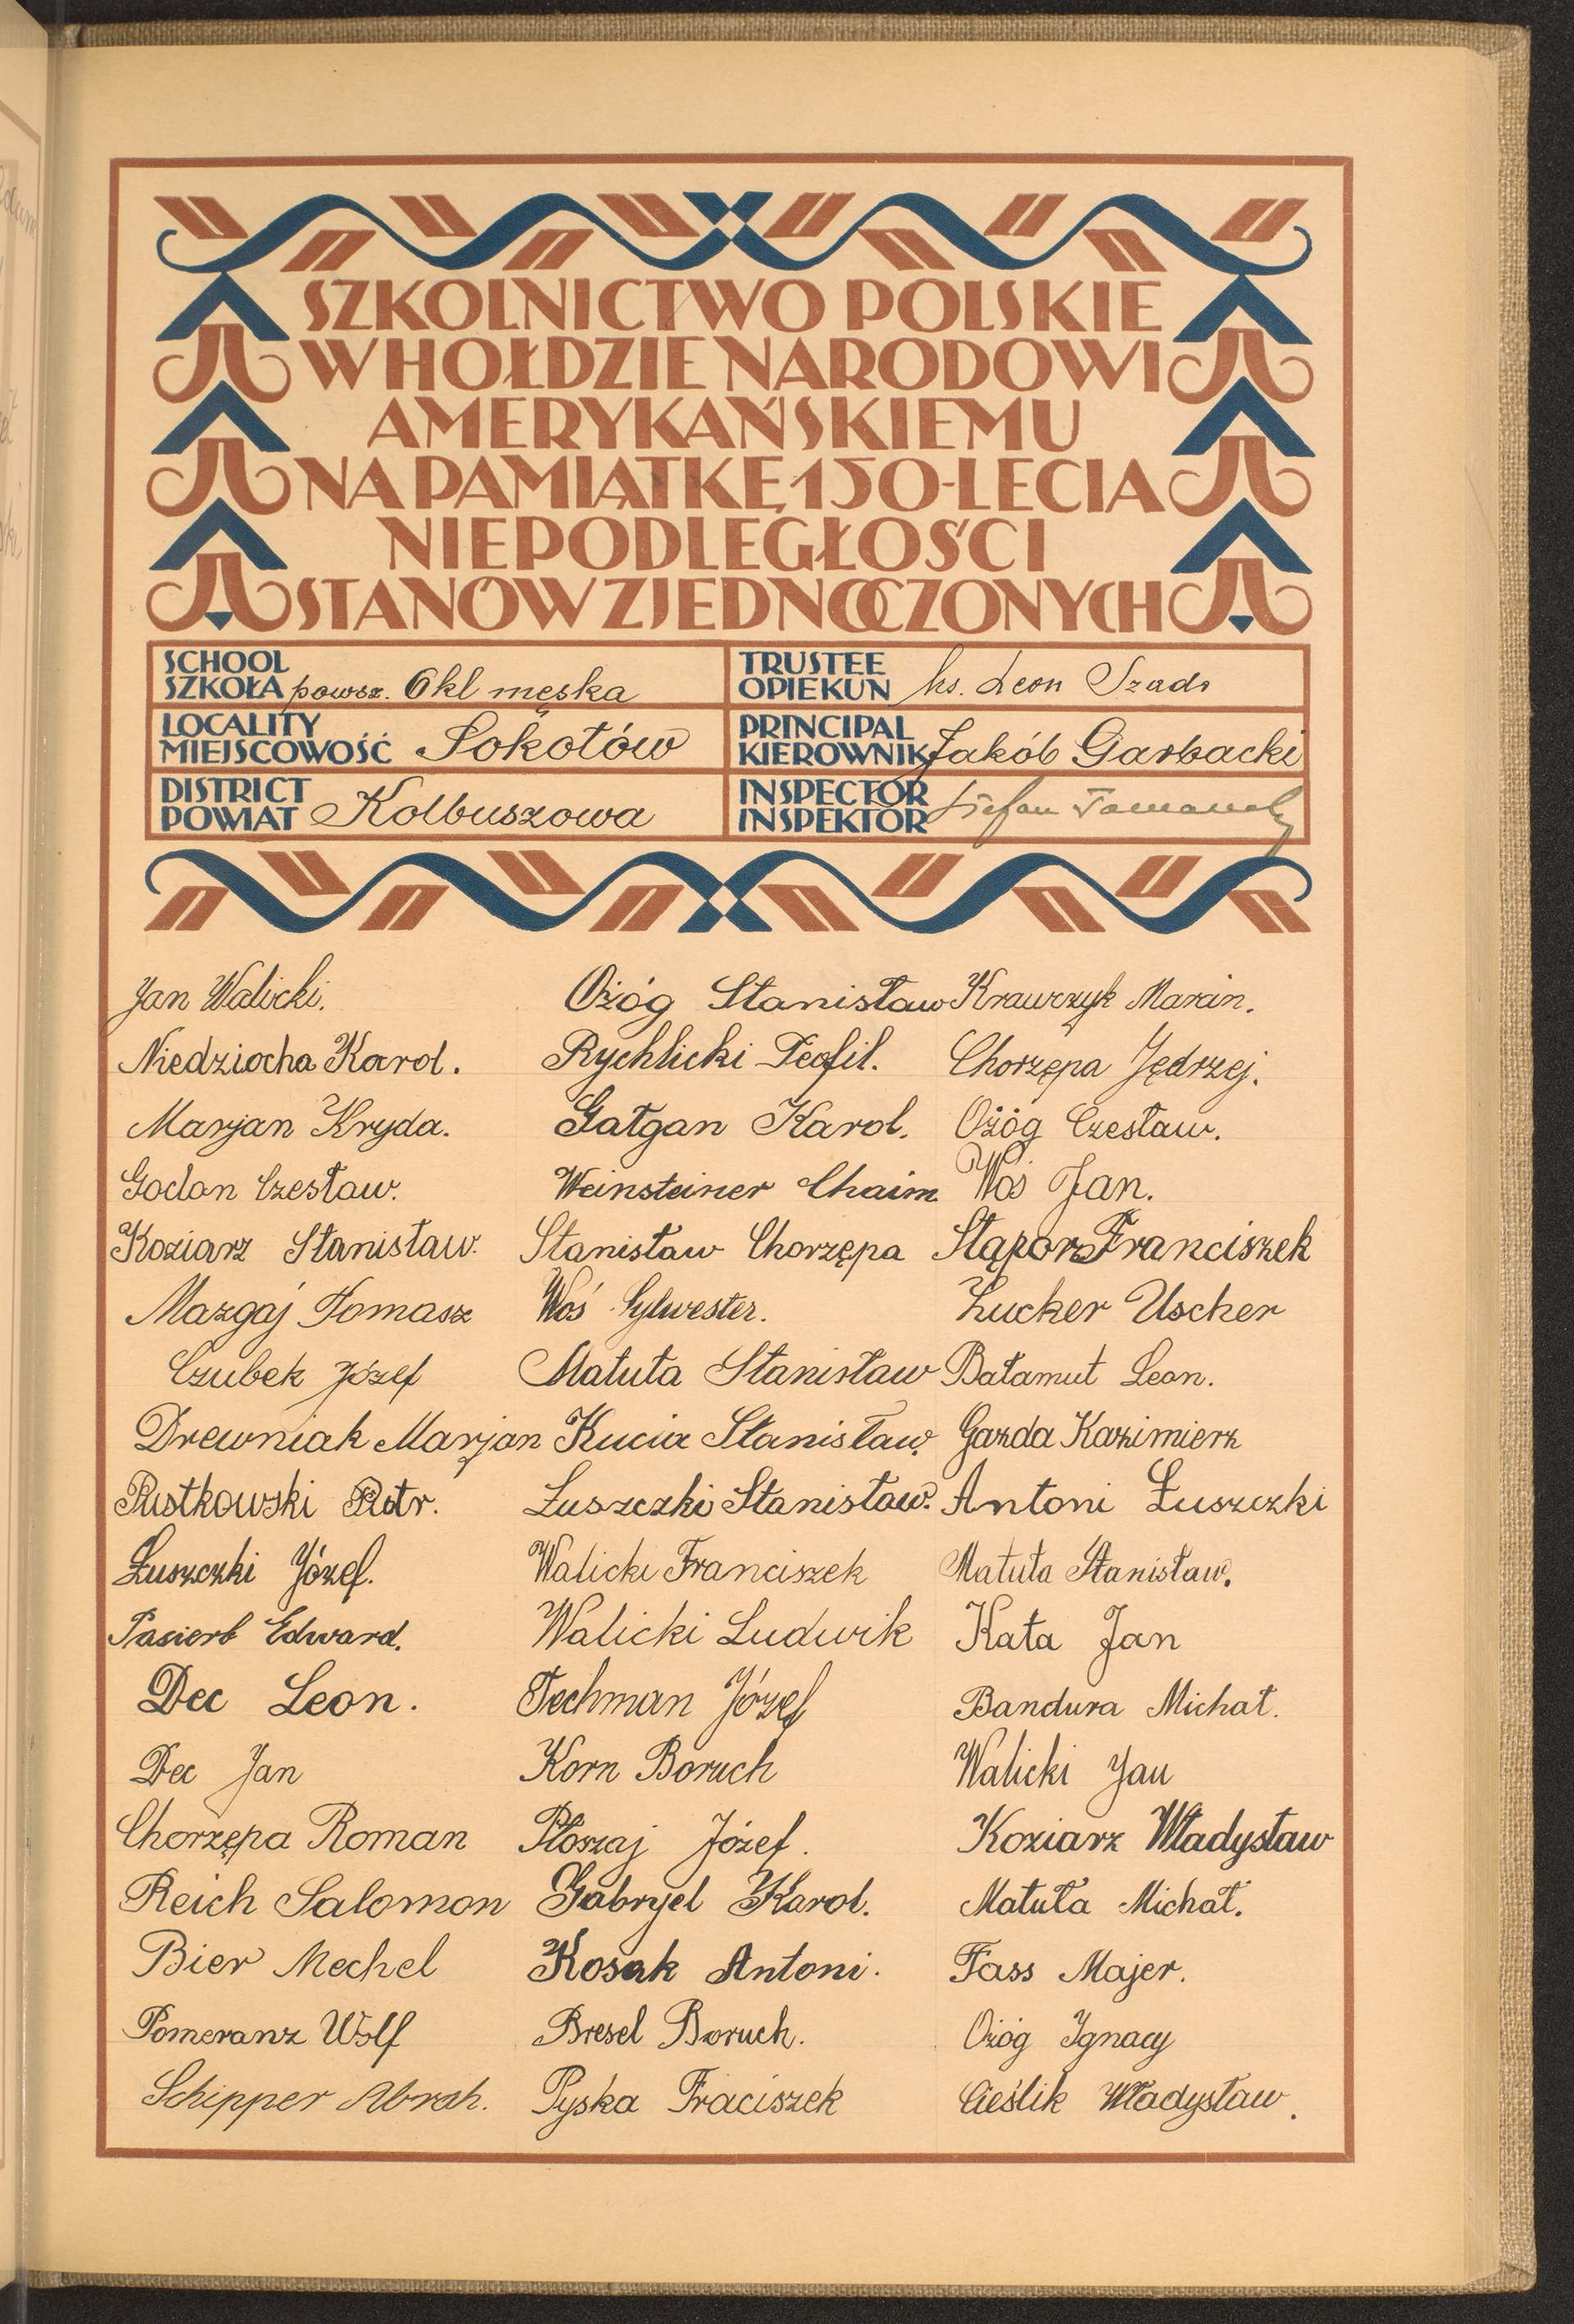 SZKOLNICTWO POLSKIE
W HOŁDZIE NARODOWI
AMERYKAŃSKIEMU
NA PAMIĄTKĘ 150-LECIA
NIEPODLEGŁOŚCI
STANÓW ZJEDNOCZONYCH
SCHOOL
SZKOŁA powsz. 6 kl męska
TRUSTEE
OPIEKUN ks. Leon Szado
LOCALITY
MIEJSCOWOŚĆ Sokołów
PRINCIPAL
KIEROWNIK Jakób Garbacki
DISTRICT
POWIAT Kolbuszowa
INSPECTOR
INSPEKTOR Stefan
Jan Walicki.
Niedziocha Karol.
Marjan Kryda.
Godan Czesław.
Koziarz Stanisław.
Mazgaj Tomasz
Czubek Józef
Drewniak Marjan
Rustkowski Piotr.
Łuszczki Józef.
Pasierb Edward.
Dec Leon.
Dec Jan
Chorzępa Roman
Reich Salomon
Bier Mechel
Pomeranz Wolf
Schipper Abrah.
Ożóg Stanisław
Rychlicki Teofil.
Gałgan Karol.
Weinsteiner Chaim
Stanisław Chorzępa
Woś Sylwester.
Matuła Stanisław
Kucia Stanisław.
Łuszczki Stanisław.
Walicki Franciszek
Walicki Ludwik
Techman Józef
Korn Boruch
Płoszaj Józef.
Gabryel Karol.
Kosak Antoni.
Bresel Boruch.
Pyska Fraciszek
Krawczyk Marcin.
Chorzępa Jędrzej.
Ożóg Czesław.
Woś Jan.
Stąporz Franciszek
Zucker Uscher
Bałamut Leon.
Gazda Kazimierz
Antoni Łuszczki
Matuła Stanisław.
Kata Jan
Bandura Michał.
Walicki Jan
Koziarz Władysław
Matuła Michał.
Fass Majer.
Ożóg Ignacy
Cieślik Władysław.